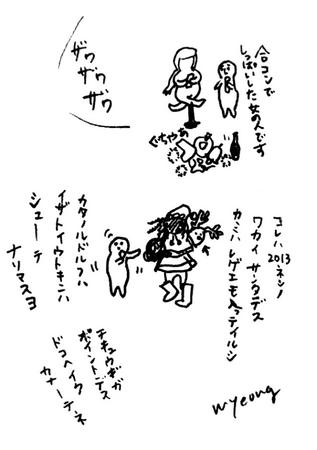 合コンで
しっぱいした女の人です
ザワ
ザワ
ザワ
ぐちゃあ
コレハ2013ネンノ
ワカイサンタデス
カミハレゲエモ入ッテイルシ
カタノルドルフハ
イザトイウトキニハ
シューテ
ナリマスヨ
チキュウギガ
ポイントデス
ドコヘイク
カナーテネ
wyeong